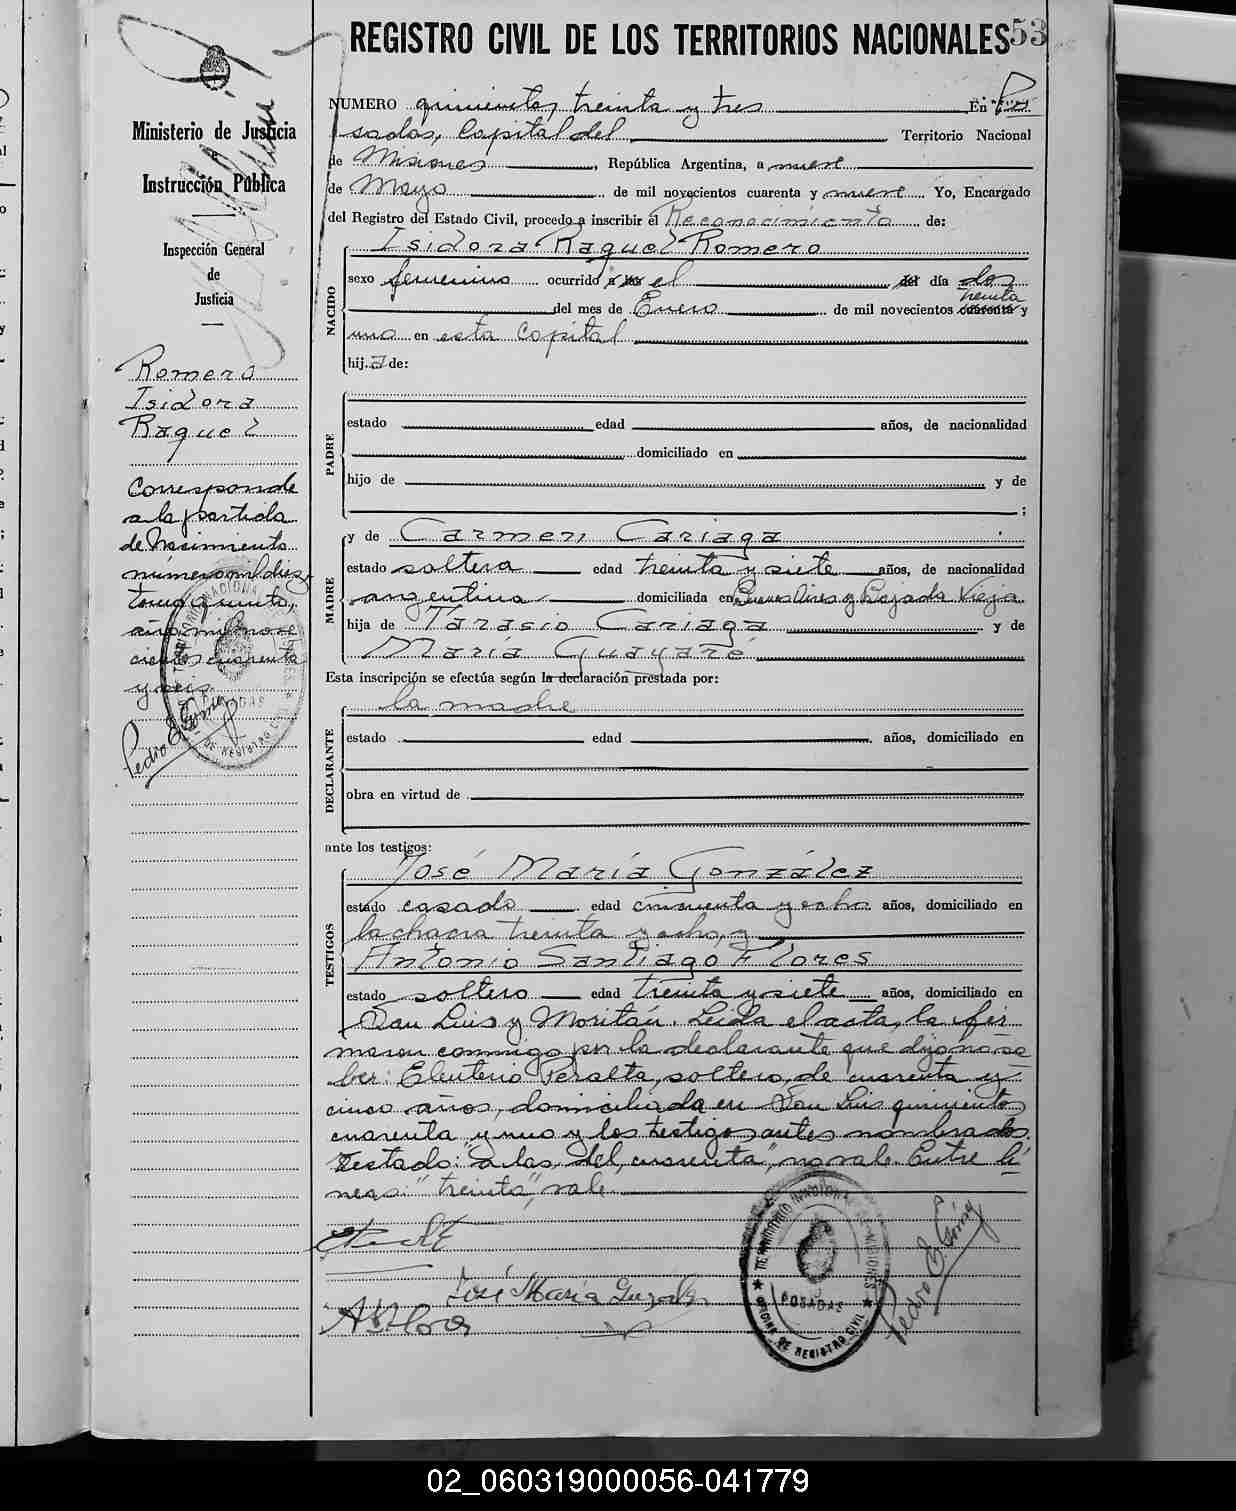 REGISTRO CIVIL DE LOS TERRITORIOS NACIONALES 53
Ministerio de Justicia
Instrucción Pública
Inspección General
de
Justicia
Romero
Isidora
Raquel
Corresponde
a la partida
de Nacimiento
número mil diez,
tomo quinto,
año mil nove
cientos cuarenta
y seis
Pedro E. Gómez
NUMERO quinientos treinta y tres En Po
sadas, Capital del Territorio Nacional
de Misiones, República Argentina, a nueve
de Mayo de mil novecientos cuarenta y nueve Yo, Encargado
del Registro del Estado Civil, procedo a inscribir él Reconocimiento de:
NACIDO
Isidora Raquel Romero
sexo femenino ocurrido a las el del día dos
treinta
del mes de Enero de mil novecientos cuarenta y
uno en esta Capital
hija de:
PADRE
estado edad años, de nacionalidad
domiciliado en
hijo de y de
;
MADRE
y de Carmen Cariaga
estado soltera edad treinta y siete años, de nacionalidad
argentina domiciliada en Buenos Aires y Bajada Vieja
hija de Tarasio Cariaga y de
María Guayaré
Esta inscripción se efectúa según la declaración prestada por:
DECLARANTE
la madre
estado edad años, domiciliado en
obra en virtud de
ante los testigos:
TESTIGOS
José María González
estado casado edad cincuenta y ocho años, domiciliado en
la chacra treinta y ocho, y
Antonio Santiago Flores
estado soltero edad treinta y siete años, domiciliado en
San Luis y Moritán. Leída el acta, la fir
maron conmigo por la declarante que dijo no sa
ber: Eleuterio Peralta, soltero, de cuarenta y
cinco años, domiciliado en San Luis quinientos
cuarenta y uno y los testigos antes nombrados.
Testado: "a las, del, cuarenta", no vale. Entre lí
neas: "treinta", vale.
José María González
A S Flores
TERRITORIO NACIONAL DE MISIONES
POSADAS
OFICINA DE REGISTRO CIVIL
Pedro E. Gómez
02_060319000056-041779